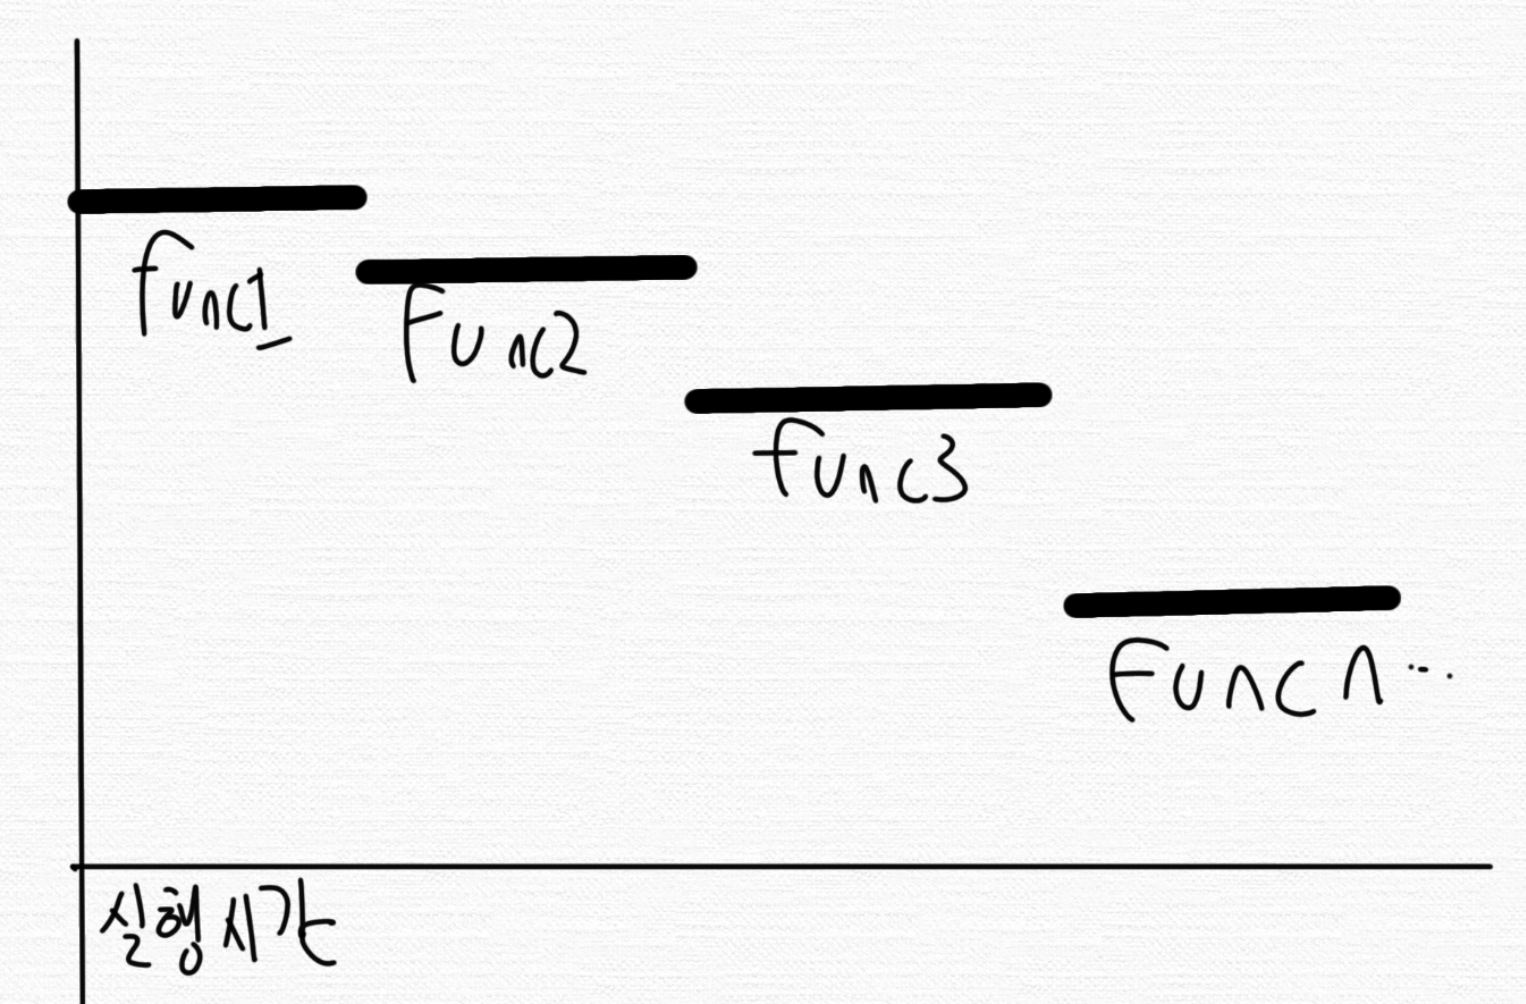 func1
Func2
func3
Func n...
실행시간